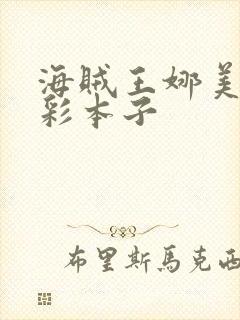 海贼王娜美
彩本子
布里斯馬克西